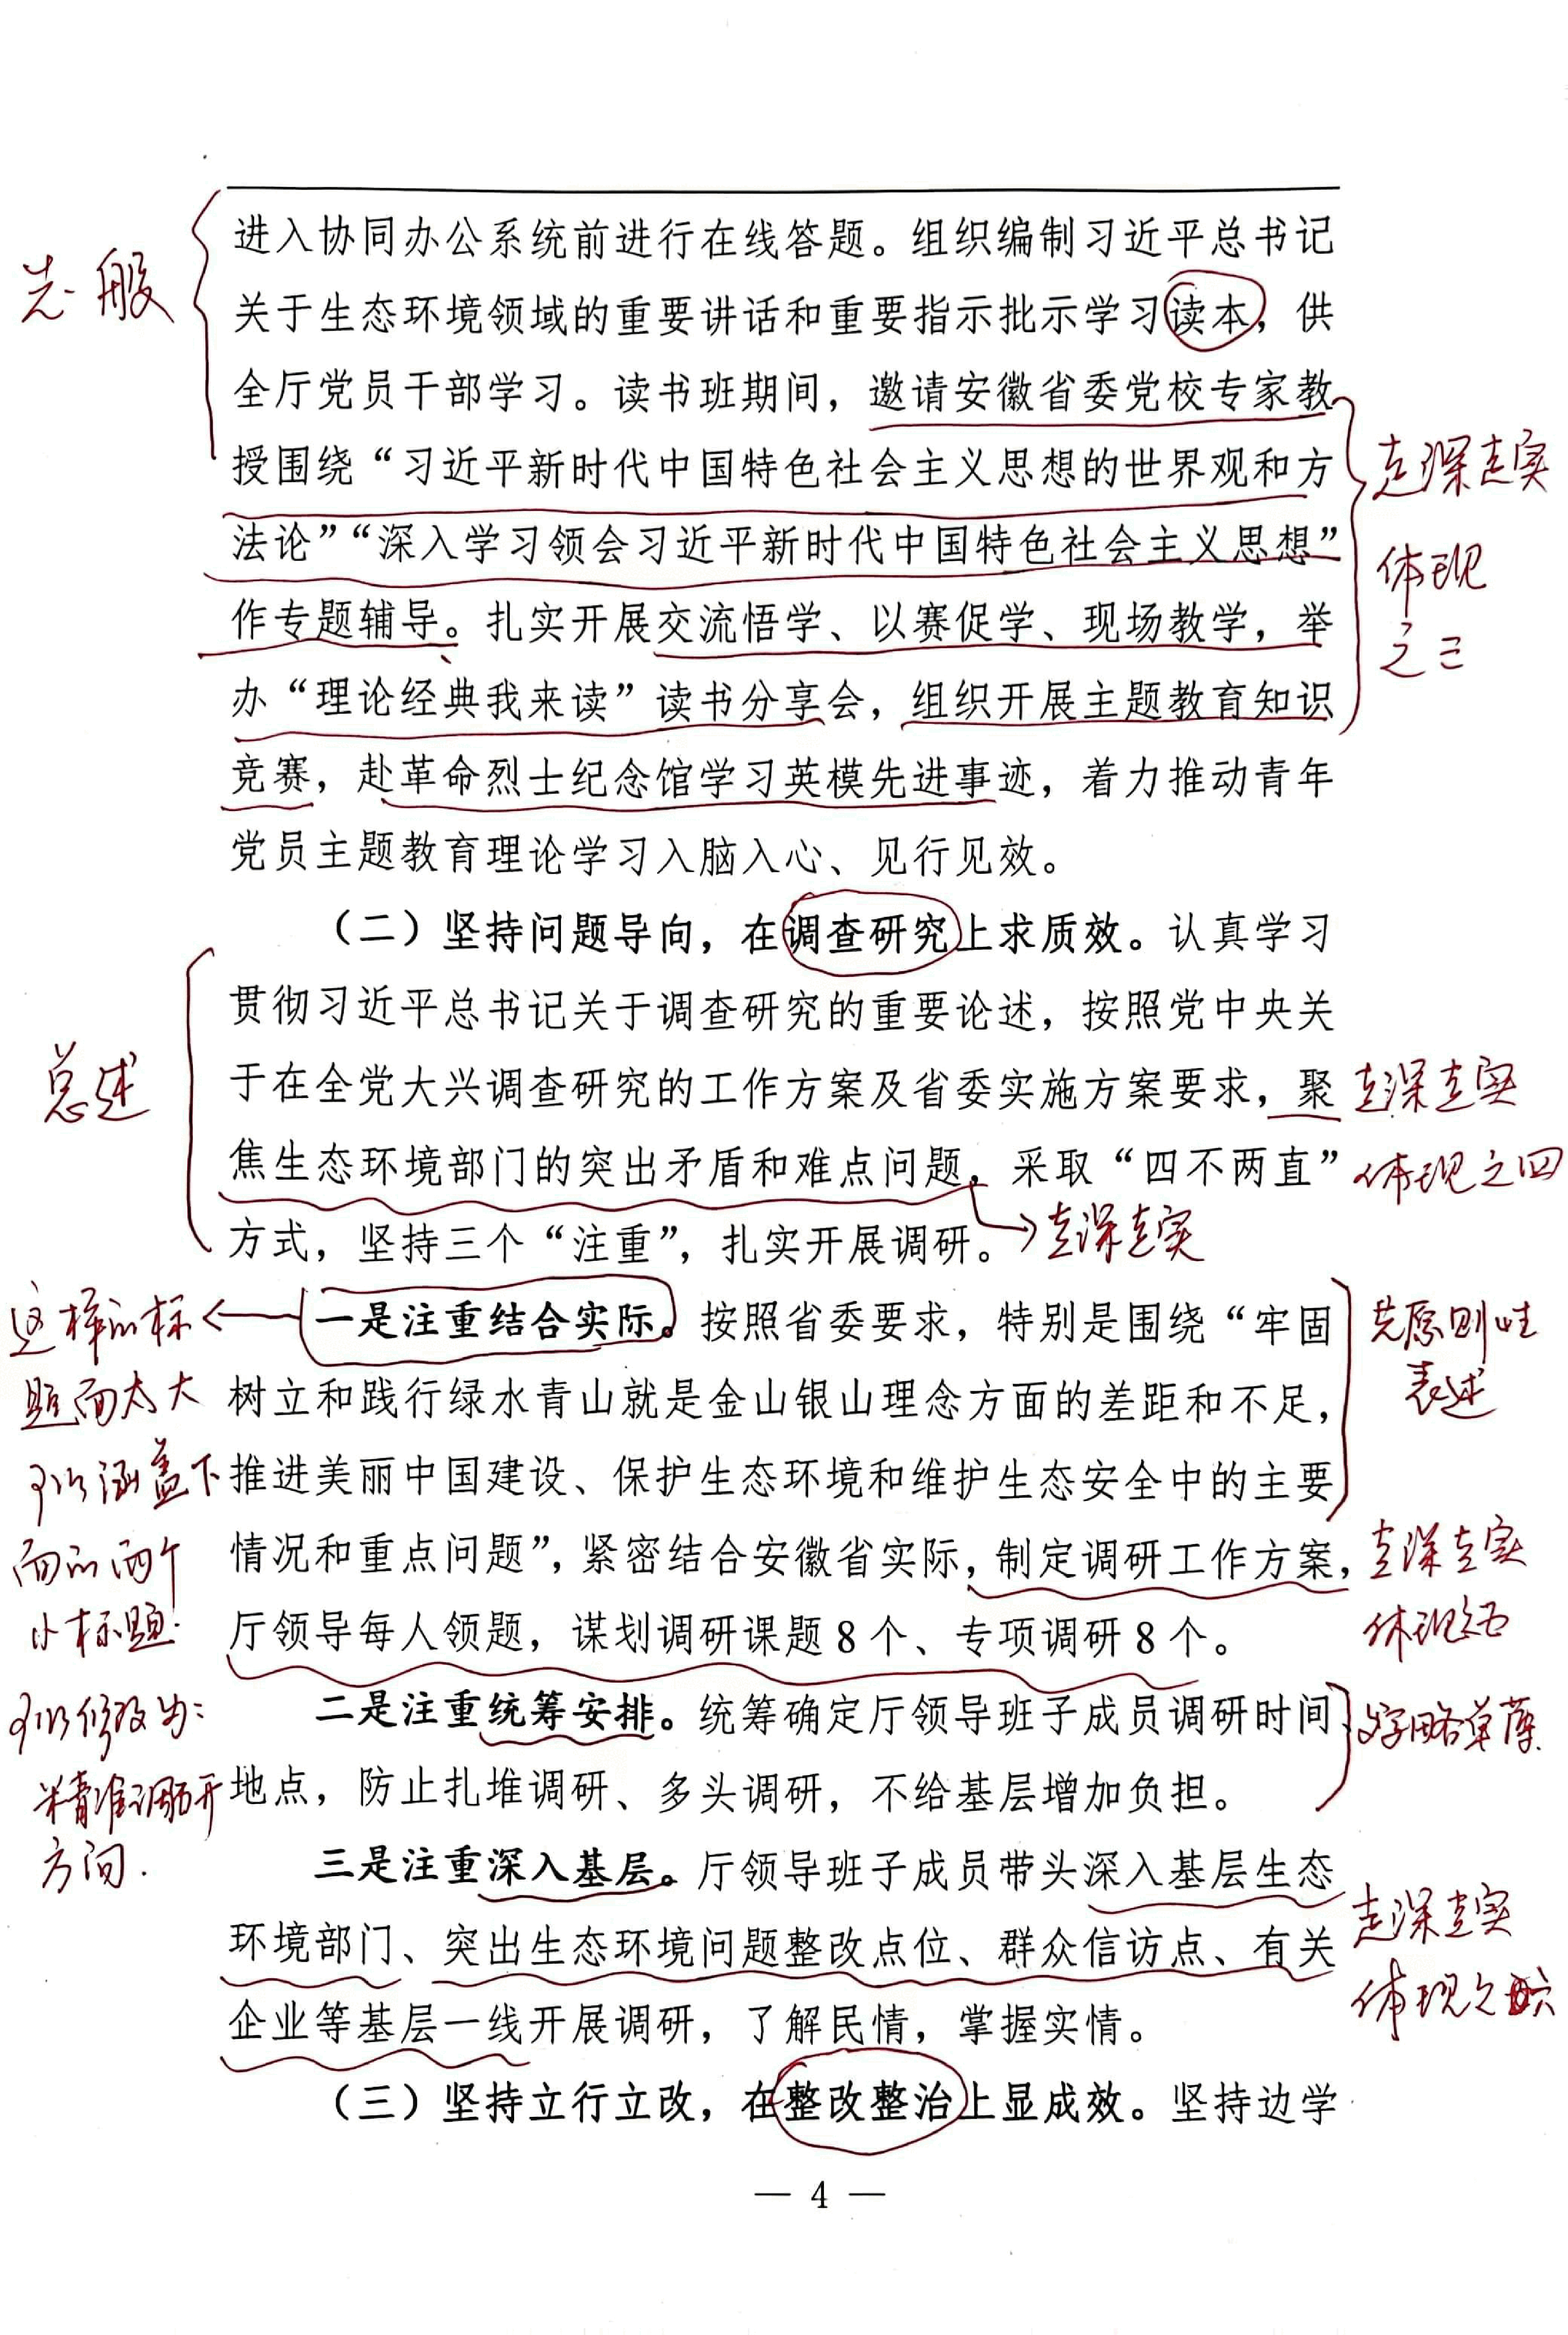 进入协同办公系统前进行在线答题。组织编制习近平总书记
关于生态环境领域的重要讲话和重要指示批示学习读本，供
全厅党员干部学习。读书班期间，邀请安徽省委党校专家教
授围绕“习近平新时代中国特色社会主义思想的世界观和方
法论”“深入学习领会习近平新时代中国特色社会主义思想”
作专题辅导。扎实开展交流悟学、以赛促学、现场教学，举
办“理论经典我来读”读书分享会，组织开展主题教育知识
竞赛，赴革命烈士纪念馆学习英模先进事迹，着力推动青年
党员主题教育理论学习入脑入心、见行见效。
（二）坚持问题导向，在调查研究上求质效。认真学习
贯彻习近平总书记关于调查研究的重要论述，按照党中央关
于在全党大兴调查研究的工作方案及省委实施方案要求，聚
焦生态环境部门的突出矛盾和难点问题，采取“四不两直”
方式，坚持三个“注重”，扎实开展调研。
一是注重结合实际。按照省委要求，特别是围绕“牢固
树立和践行绿水青山就是金山银山理念方面的差距和不足，
推进美丽中国建设、保护生态环境和维护生态安全中的主要
情况和重点问题”，紧密结合安徽省实际，制定调研工作方案，
厅领导每人领题，谋划调研课题 8 个、专项调研 8 个。
二是注重统筹安排。统筹确定厅领导班子成员调研时间、
地点，防止扎堆调研、多头调研，不给基层增加负担。
三是注重深入基层。厅领导班子成员带头深入基层生态
环境部门、突出生态环境问题整改点位、群众信访点、有关
企业等基层一线开展调研，了解民情，掌握实情。
（三）坚持立行立改，在整改整治上显成效。坚持边学
— 4 —
先一般
总述
这样的标
题面太大
可以涵盖下
面的两个
小标题.
可以修改为：
精准调研
方向.
走深走实
体现
之三
走深走实
体现之四
走深走实
先原则性
表述
走深走实
体现之五
文字略单薄.
走深走实
体现之六